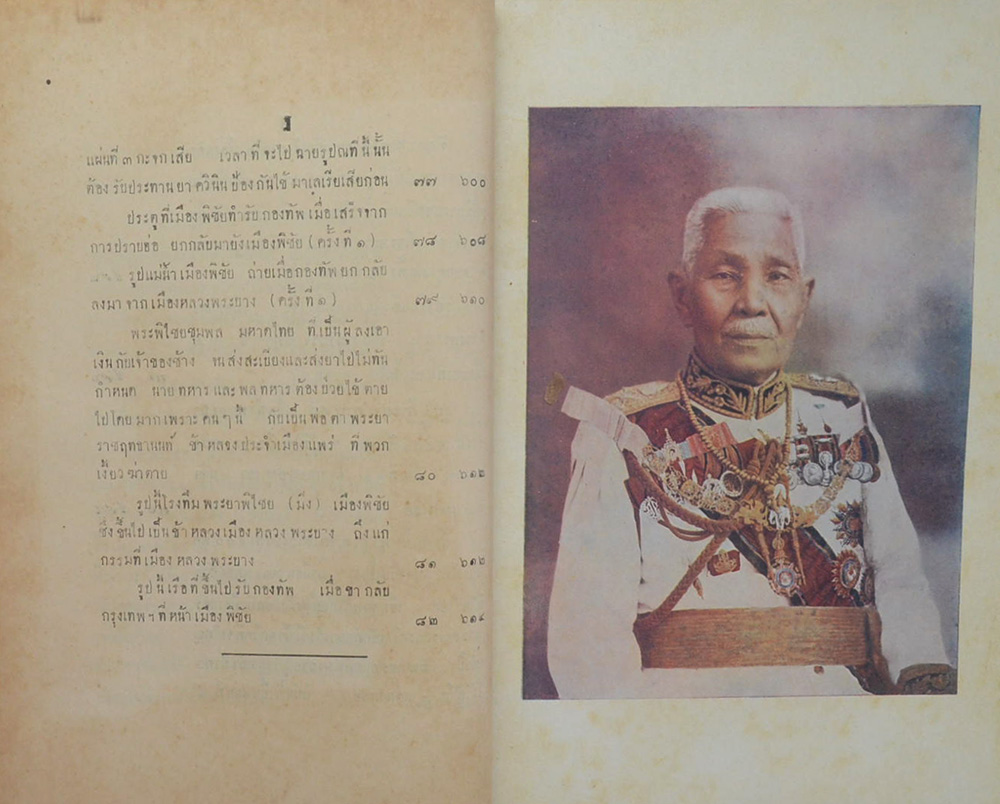 แผ่นที่ ๓ กะจกเสีย เวลาที่จะไปฉายรูปณที่นี้นั้น
ต้องรับประทานยาควินินป้องกันไข้มาเลเรียเสียก่อน ๗๗ ๖๐๐
ประตูที่เมืองพิชัยทำรับกองทัพ เมื่อเสร็จจาก
การปราบฮ่อ ยกกลับมายังเมืองพิชัย (ครั้งที่ ๑) ๗๘ ๖๐๘
รูปแม่น้ำเมืองพิชัย ถ่ายเมื่อกองทัพยกกลับ
ลงมาจากเมืองหลวงพระบาง (ครั้งที่ ๑) ๗๙ ๖๑๐
พระพิไชยชุมพล มหาดไทย ที่เป็นผู้ลงเอา
เงินกับเจ้าของช้าง จนส่งสะเบียงและส่งยาไปไม่ทัน
กำหนด นายทหารและพลทหารต้องป่วยไข้ตาย
ไปโดยมากเพราะคนๆนี้ กับเป็นพ่อตาพระยา
ราชฤทธานนท์ ข้าหลวงประจำเมืองแพร่ ที่พวก
เงี้ยวฆ่าตาย ๘๐ ๖๑๒
รูปนี้โรงทึมพระยาพิไชย (มิ่ง) เมืองพิชัย
ซึ่งขึ้นไปเป็นข้าหลวงเมืองหลวงพระบาง ถึงแก่
กรรมที่เมืองหลวงพระบาง ๘๑ ๖๑๒
รูปนี้เรือที่ขึ้นไปรับกองทัพ เมื่อขากลับ
กรุงเทพฯที่หน้าเมืองพิชัย ๘๒ ๖๑๔